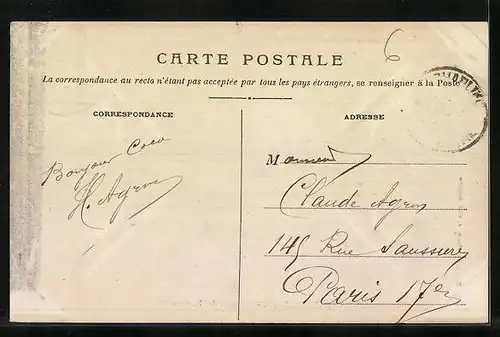 6
CARTE POSTALE
La correspondance au recto n'étant pas acceptée par tous les pays étrangers, se renseigner à la Poste
CORRESPONDANCE
ADRESSE
Bonjour Coco
H. Agron
Monsieur
Claude Agron
145 Rue Saussure
Paris 17e